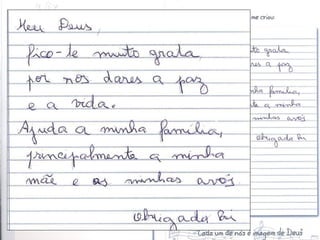 Meu Deus,
fico-te muito grata
por nos dares a paz
e a vida.
Ajuda a minha família,
principalmente a minha
mãe e as minhas avós.
obrigada Bi
Cada um de nós é imagem de Deus
me criou
to grata
res a paz
nha família,
te a minha
minhas avós
obrigada Bi